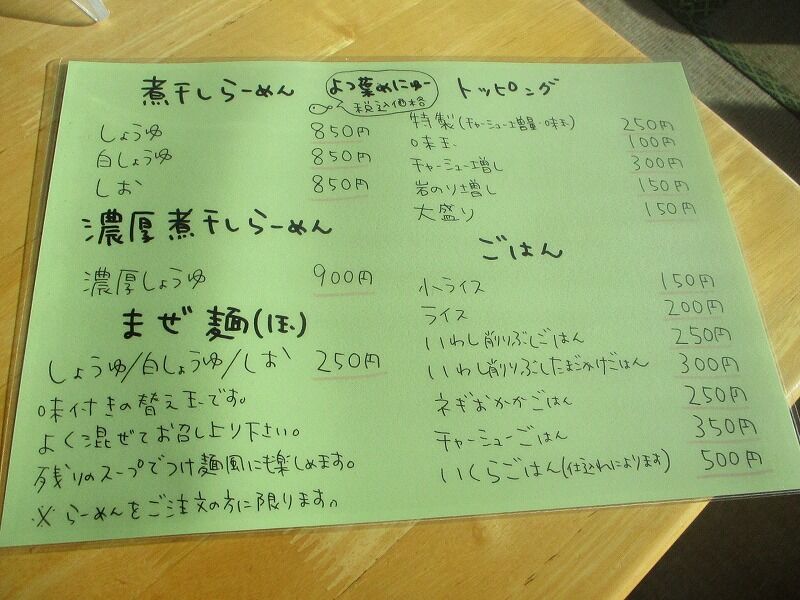 煮干しらーめん
しょうゆ 850円
白しょうゆ 850円
しお 850円
濃厚煮干しらーめん
濃厚しょうゆ 900円
まぜ麺(玉)
しょうゆ/白しょうゆ/しお 250円
味付きの替え玉です。
よく混ぜてお召し上り下さい。
残りのスープでつけ麺風にも楽しめます。
※らーめんをご注文の方に限ります。
よつ葉めにゅー
税込価格
トッピング
特製(チャーシュー増量・味玉) 250円
味玉 100円
チャーシュー増し 300円
岩のり増し 150円
大盛り 150円
ごはん
小ライス 150円
ライス 200円
いわし削りぶしごはん 250円
いわし削りぶしたまごかけごはん 300円
ネギおかかごはん 250円
チャーシューごはん 350円
いくらごはん(仕込れによります) 500円